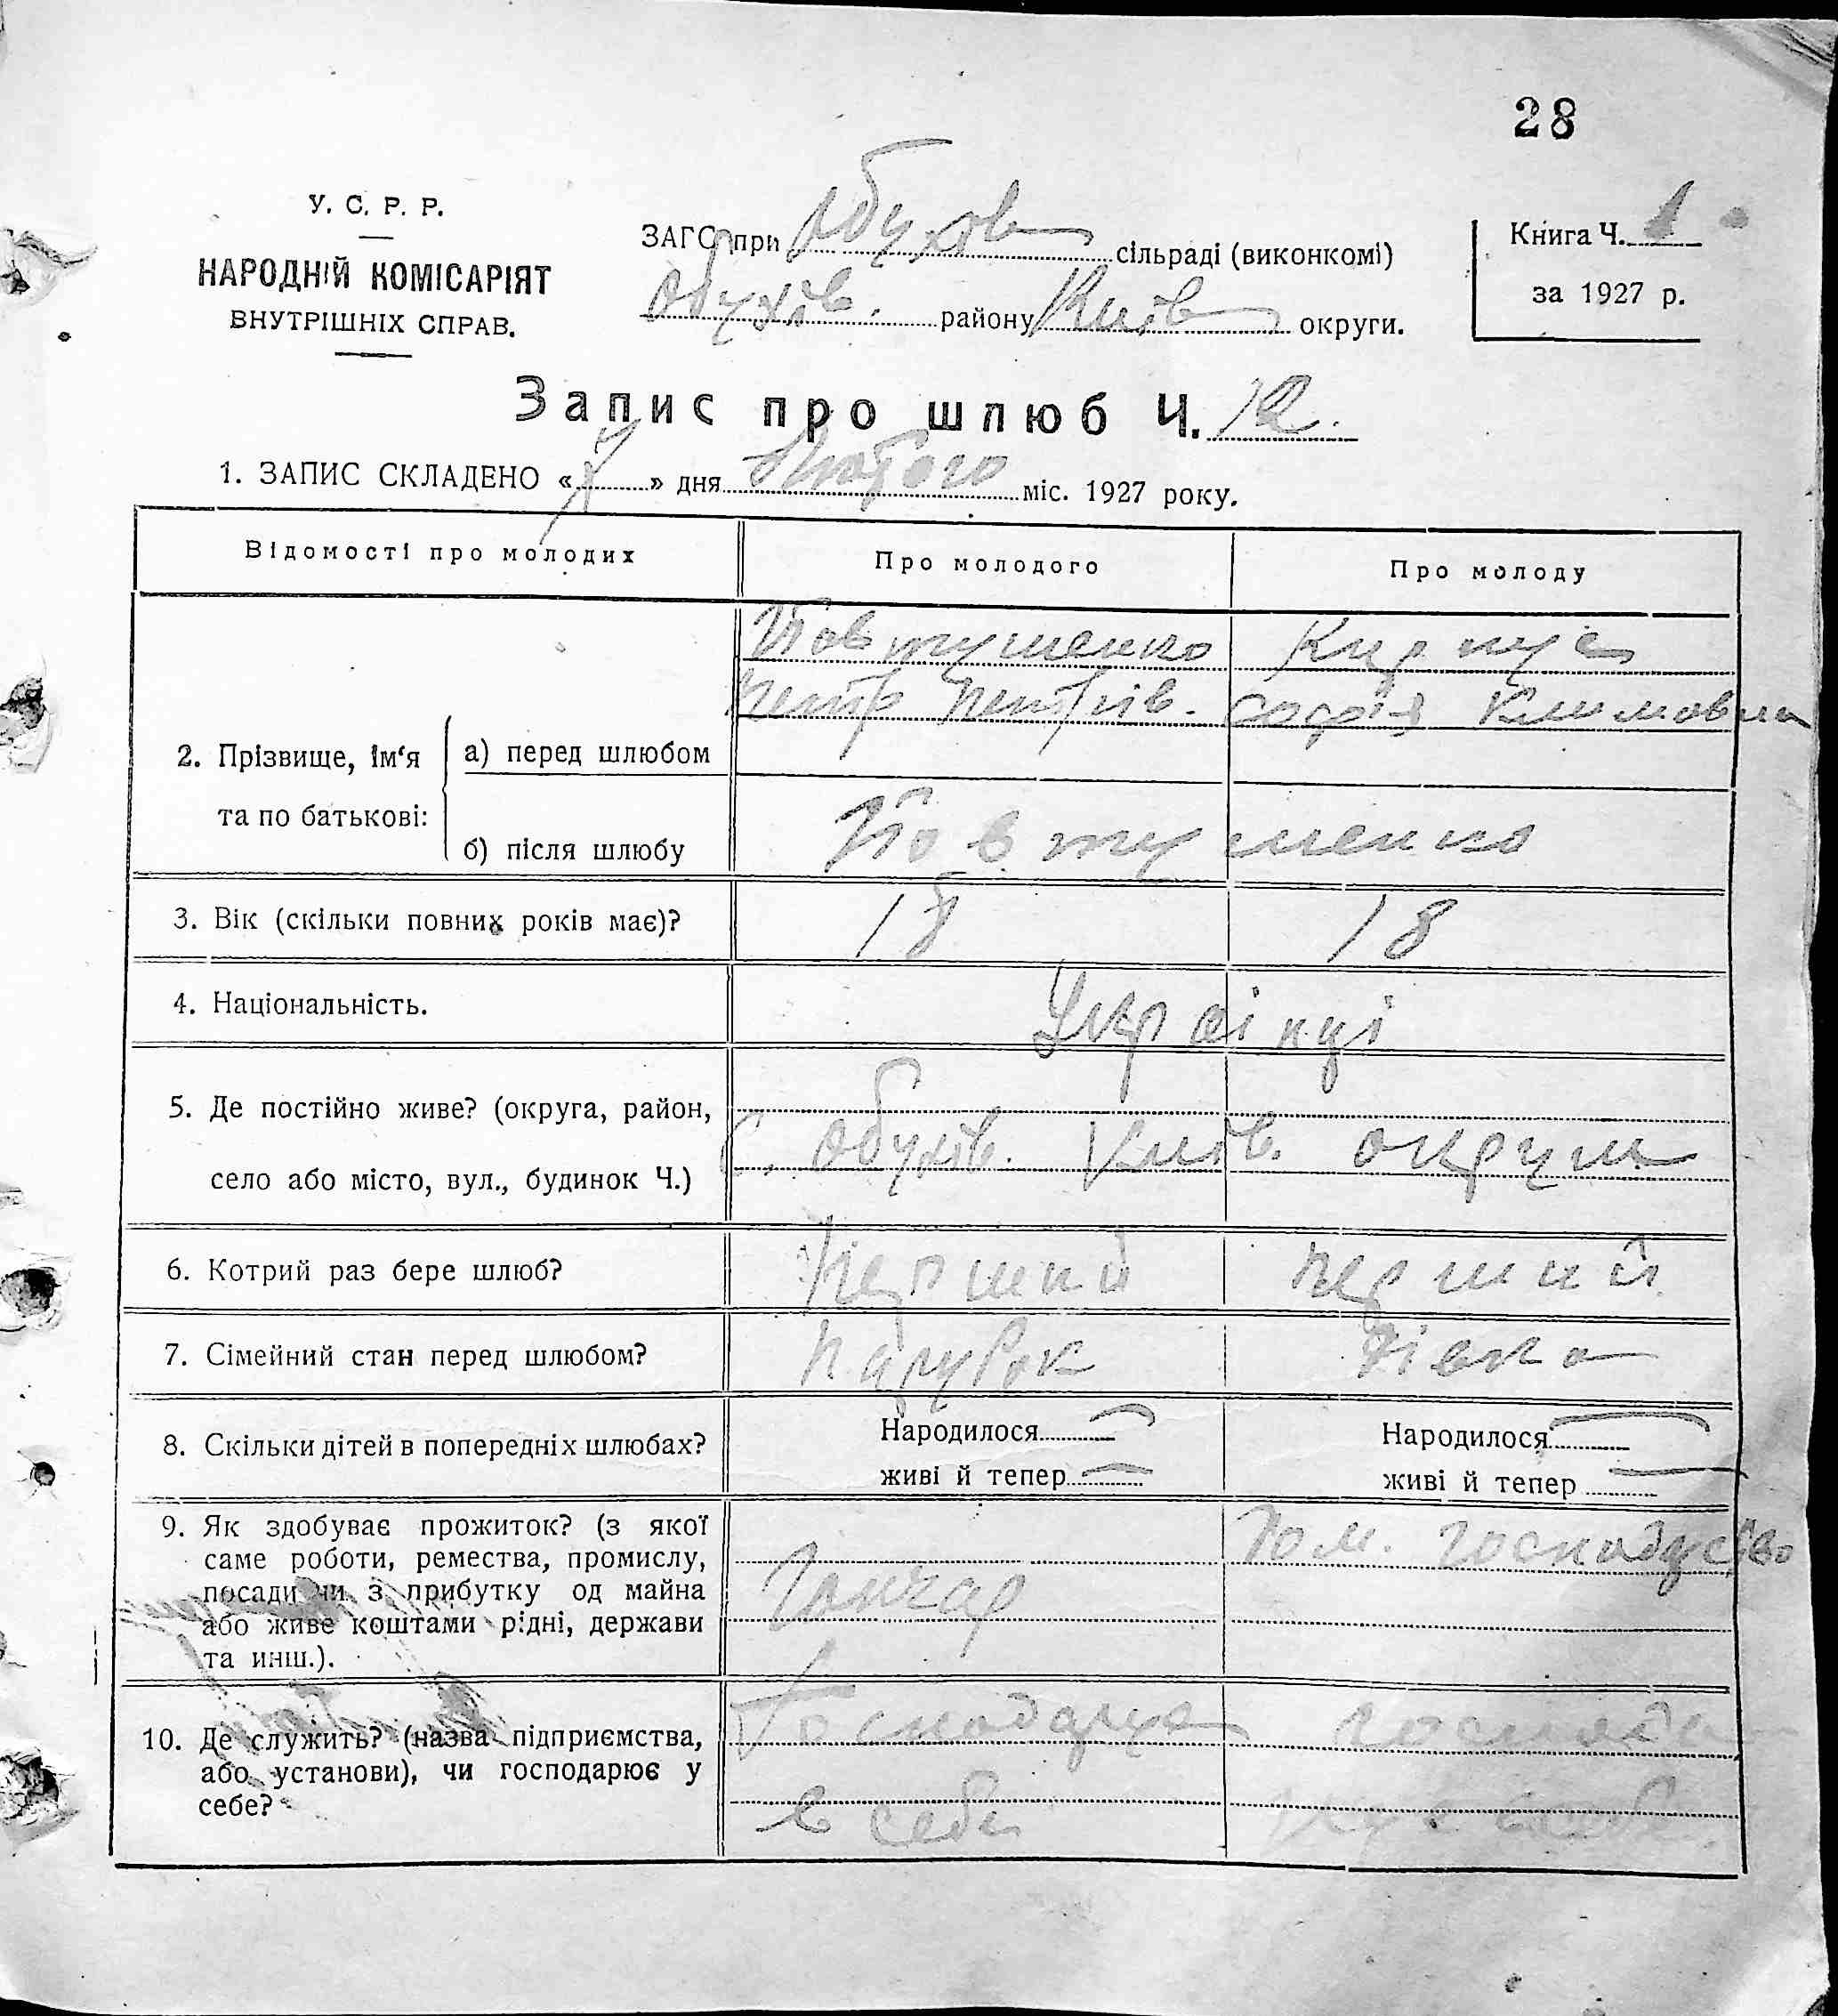 28
У. С. Р. Р.
НАРОДНІЙ КОМІСАРІЯТ
ВНУТРІШНІХ СПРАВ.
ЗАГС при Обухов сільраді (виконкомі)
Обухів. району Київ округи.
Книга Ч. 1
за 1927 р.
Запис про шлюб Ч. 12.
1. ЗАПИС СКЛАДЕНО « 7 » дня Лютого міс. 1927 року.
Відомості про молодих Про молодого Про молоду
2. Прізвище, ім‘я та по батькові:
а) перед шлюбом
Йовтушенко
Петр Петрів.
Софія Климовна
б) після шлюбу
Йовтушенко
3. Вік (скільки повних років має)? 18 18
4. Національність. Українці
5. Де постійно живе? (округа, район,
село або місто, вул., будинок Ч.)
с. Обухів. Київ. округи
6. Котрий раз бере шлюб? Перший перший
7. Сімейний стан перед шлюбом? Парубок Дівка
8. Скільки дітей в попередніх шлюбах?
Народилося — Народилося —
живі й тепер — живі й тепер —
9. Як здобуває прожиток? (з якої
саме роботи, ремества, промислу,
посади чи з прибутку од майна
або живе коштами рідні, держави
та инш.).
Гончар
Дом. господарство
10. Де служить? (назва підприємства,
або установи), чи господарює у
себе?
Господарує
в себе
господа